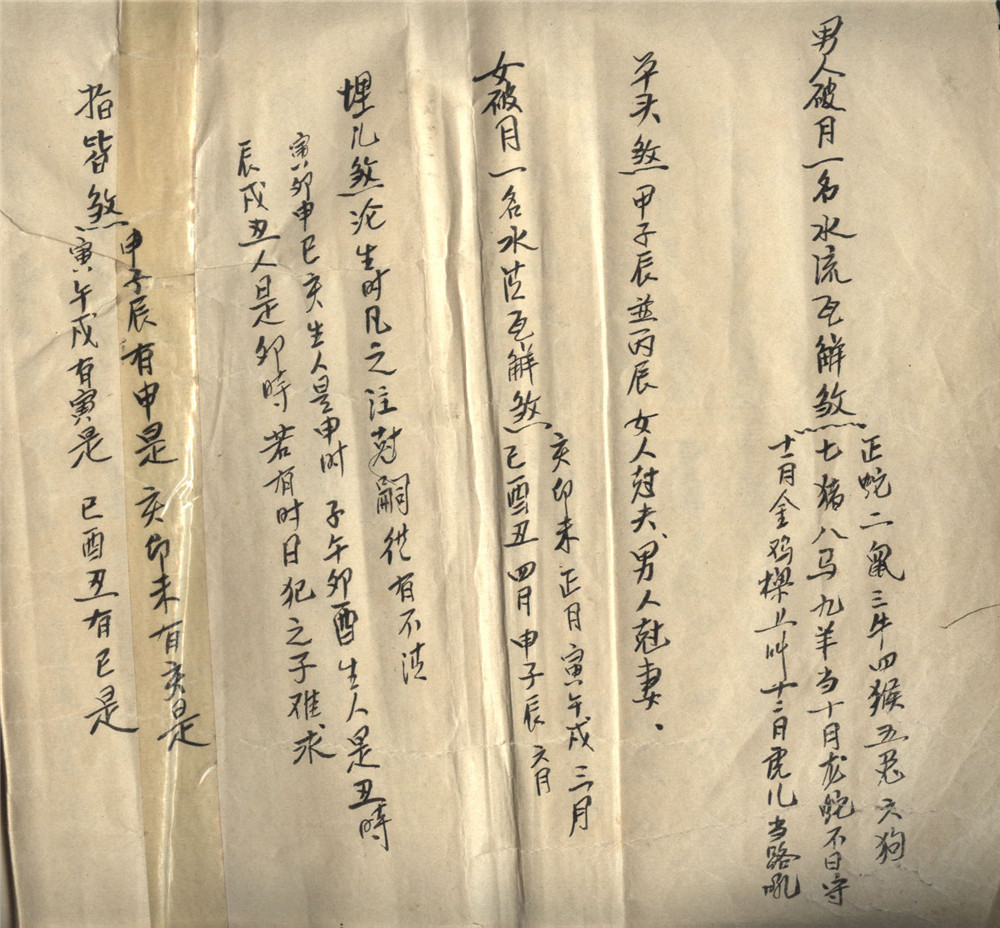 男人破月一名水流瓦解煞
正蛇二鼠三牛四猴五兎六狗
七猪八马九羊当十月龙蛇不日守
十一月金鸡樑上叫十二月虎儿当路吼
羊头煞甲子辰並丙辰女人尅夫、男人尅妻、
女破月一名水流瓦解煞
亥卯未正月寅午戍三月
巳酉丑四月申子辰六月
埋儿煞沦生时凡之注尅嗣徙有不流
寅卯申巳亥生人是申时子午卯酉生人是丑時
辰戍丑人是卯時若有时日犯之子难求
指皆煞
申子辰有申是亥卯未有亥是
寅午戍有寅是巳酉丑有巳是